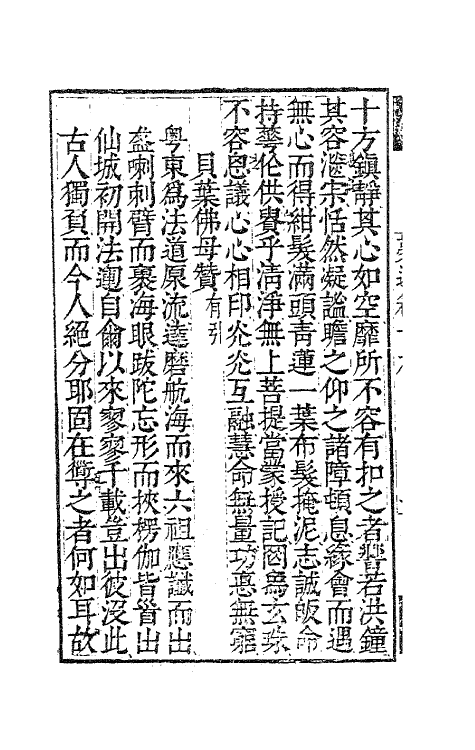 十方鎮靜其心如空靡所不容有扣之者響若洪鐘
其容瀊宗恬然凝謐瞻之仰之諸障頓息緣會而遇
無心而得紺髮滿頭青蓮一葉布髮掩泥志誠皈命
持華伦供賽乎清淨無上菩提當蒙授記罔為玄珠
不容思議心心相印炎炎互融慧命無量功惪無窮
貝葉佛母贊有引
粵東為法道原流達磨航海而來六祖應讖而出
盋喇刺臂而裹海眼跋陀忘形而挾楞伽皆首出
仙城初開法運自爾以來寥寥千載豈出彼沒此
古人獨負而今人絕分耶固在衛之者何如耳故